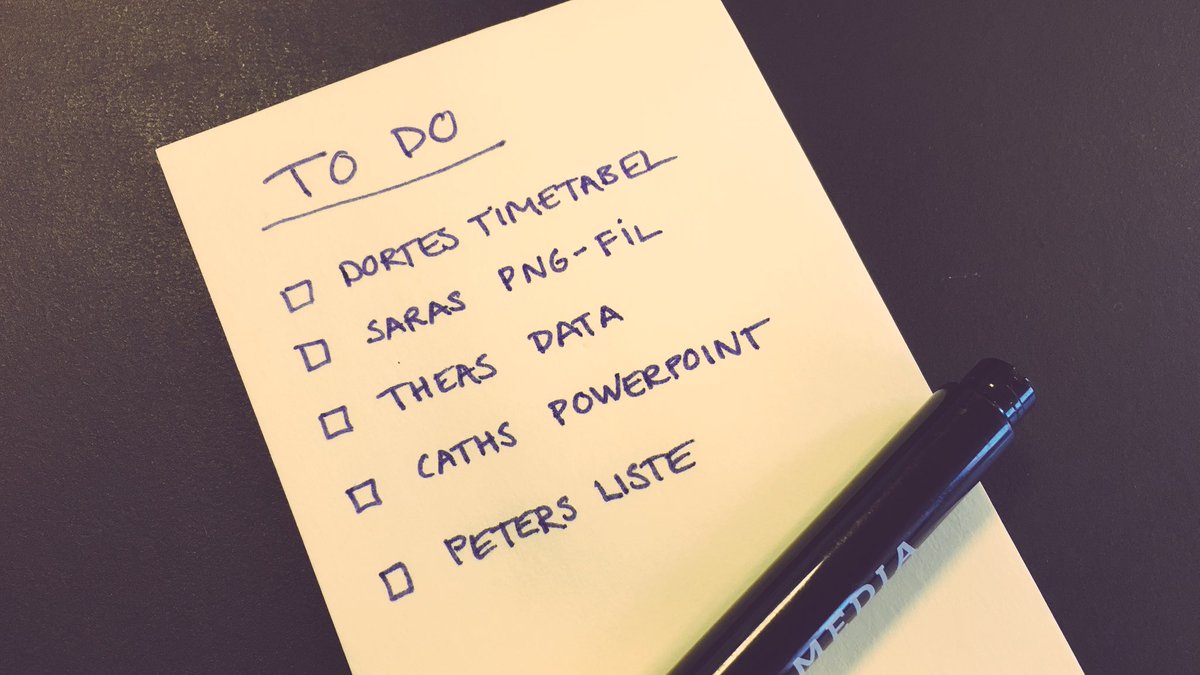 TO DO
DORTES TIMETABEL
SARAS PNG-FIL
THEAS DATA
CATHS POWERPOINT
PETERS LISTE
MEDIA